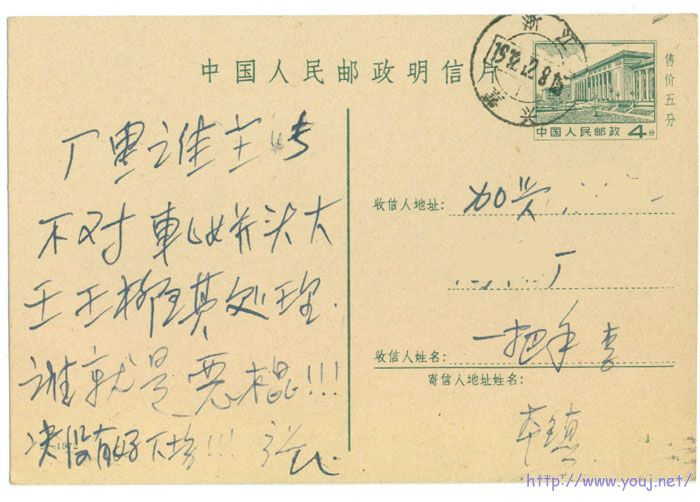 中国人民邮政明信片
浙江
嘉兴
售价五分
中国人民邮政 4分
厂里谁主
不对 头大
王王 其处理.
谁就是恶棍!!!
决没有好下场!!!
1972
收信人地址:
加兴
厂
收信人姓名: 一把手 李
寄信人地址姓名:
本镇
http://www.youj.net/